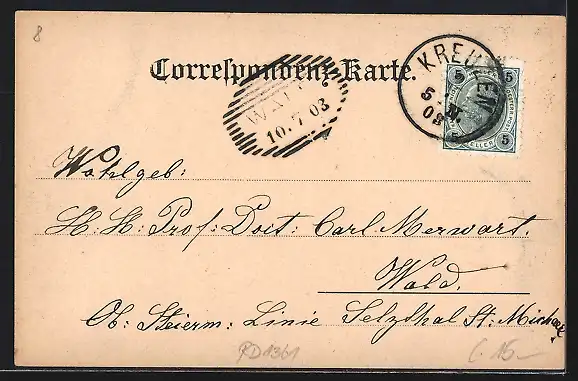 8
Correspondenz-Karte.
KREUZEN
5
03
WALD
10.7 03
5 5
5 5
Wohlgeb:
H. H. Prof: Doct: Carl Merwart.
Wald.
Ob: Steierm: Linie Selzthal St: Michael
RD1361
€ 15.-